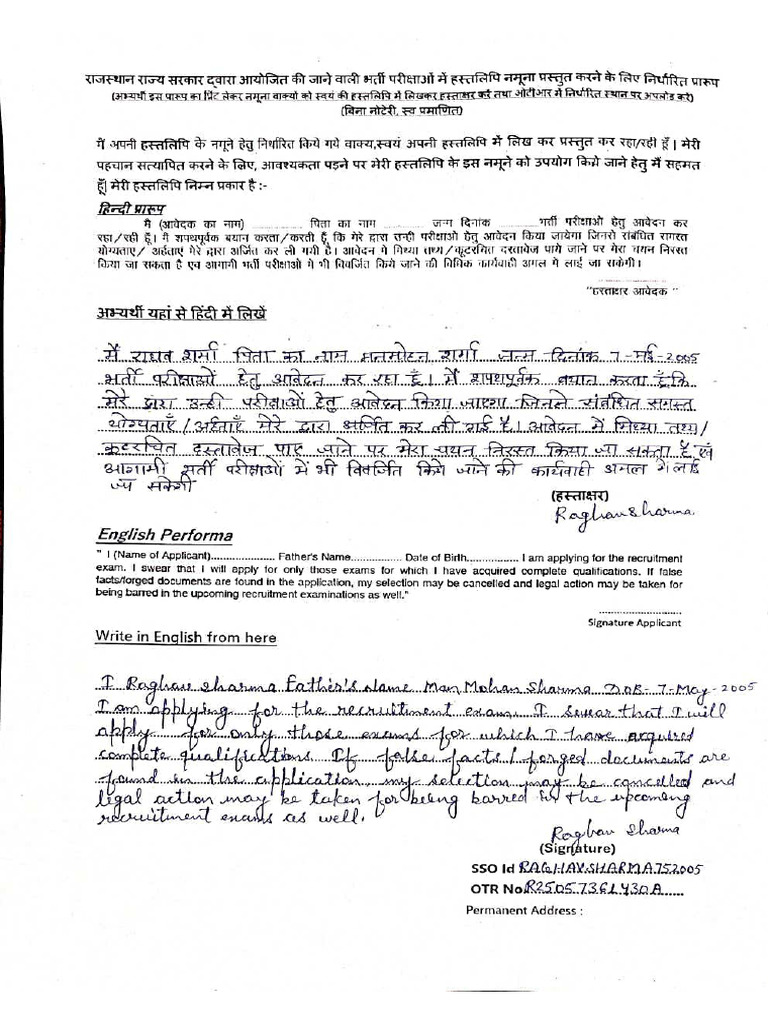 राजस्थान राज्य सरकार द्वारा आयोजित की जाने वाली भर्ती परीक्षाओं में हस्तलिपि नमूना प्रस्तुत करने के लिए निर्धारित प्रारूप
(अभ्यर्थी इस प्रारूप का प्रिंट लेकर नमूना वाक्यों को स्वयं की हस्तलिपि में लिखकर हस्ताक्षर करें तथा ओटीआर में निर्धारित स्थान पर अपलोड करें)
(बिना नोटेरी, स्व प्रमाणित)
मैं अपनी हस्तलिपि के नमूने हेतु निर्धारित किये गये वाक्य,स्वयं अपनी हस्तलिपि में लिख कर प्रस्तुत कर रहा/रही हूँ | मेरी
पहचान सत्यापित करने के लिए, आवश्यकता पड़ने पर मेरी हस्तलिपि के इस नमूने को उपयोग किये जाने हेतु में सहमत
हूँ| मेरी हस्तलिपि निम्न प्रकार है :-
हिन्दी प्रारूप
मै (आवेदक का नाम) .................. पिता का नाम .................. जन्म दिनांक ............ भर्ती परीक्षाओ हेतु आवेदन कर
रहा/रही हूँ। मै शपथपूर्वक बयान करता/करती हूँ, कि मेरे द्वारा उन्ही परीक्षाओ हेतु आवेदन किया जायेगा जिनसे संबंधित समस्त
योग्यताए/ अर्हताए मेरे द्वारा अर्जित कर ली गयी है। आवेदन मे मिथ्या तथ्य/कूटरचित दस्तावेज पाये जाने पर मेरा चयन निरस्त
किया जा सकता है एव आगामी भर्ती परीक्षाओ मे भी विवर्जित किये जाने की विधिक कार्यवाही अमल मे लाई जा सकेगी।
..................
"हस्ताक्षर आवेदक "
अभ्यर्थी यहां से हिंदी में लिखें
मैं राघव शर्मा पिता का नाम मनमोहन शर्मा जन्म दिनांक 7-मई-2005
भर्ती परीक्षाओं हेतु आवेदन कर रहा हूँ। मैं शपथपूर्वक बयान करता हूँ कि
मेरे द्वारा उन्ही परीक्षाओं हेतु आवेदन किया जाएगा जिनसे संबंधित समस्त
योग्यताएँ/अर्हताएँ मेरे द्वारा अर्जित कर ली गई है। आवेदन में मिथ्या तथ्य/
कूटरचित दस्तावेज पाए जाने पर मेरा चयन निरस्त किया जा सकता है एवं
आगामी भर्ती परीक्षाओं में भी विवर्जित किये जाने की कार्यवाही अमल में लाई
जा सकेगी
(हस्ताक्षर)
Raghav Sharma
English Performa
" I (Name of Applicant)..................... Father's Name................. Date of Birth................ I am applying for the recruitment
exam. I swear that I will apply for only those exams for which I have acquired complete qualifications. If false
facts/forged documents are found in the application, my selection may be cancelled and legal action may be taken for
being barred in the upcoming recruitment examinations as well."
..................
Signature Applicant
Write in English from here
I Raghav Sharma Father's Name Man Mohan Sharma DOB- 7-May-2005
I am applying for the recruitment exam. I swear that I will
apply for only those exams for which I have acquired
complete qualifications If false facts/forged documents are
found in the application, my selection may be cancelled and
legal action may be taken for being barred in the upcoming
recruitment exams as well.
Raghav Sharma
(Signature)
SSO Id RAGHAVSHARMA752005
OTR No R25057361430A
Permanent Address :